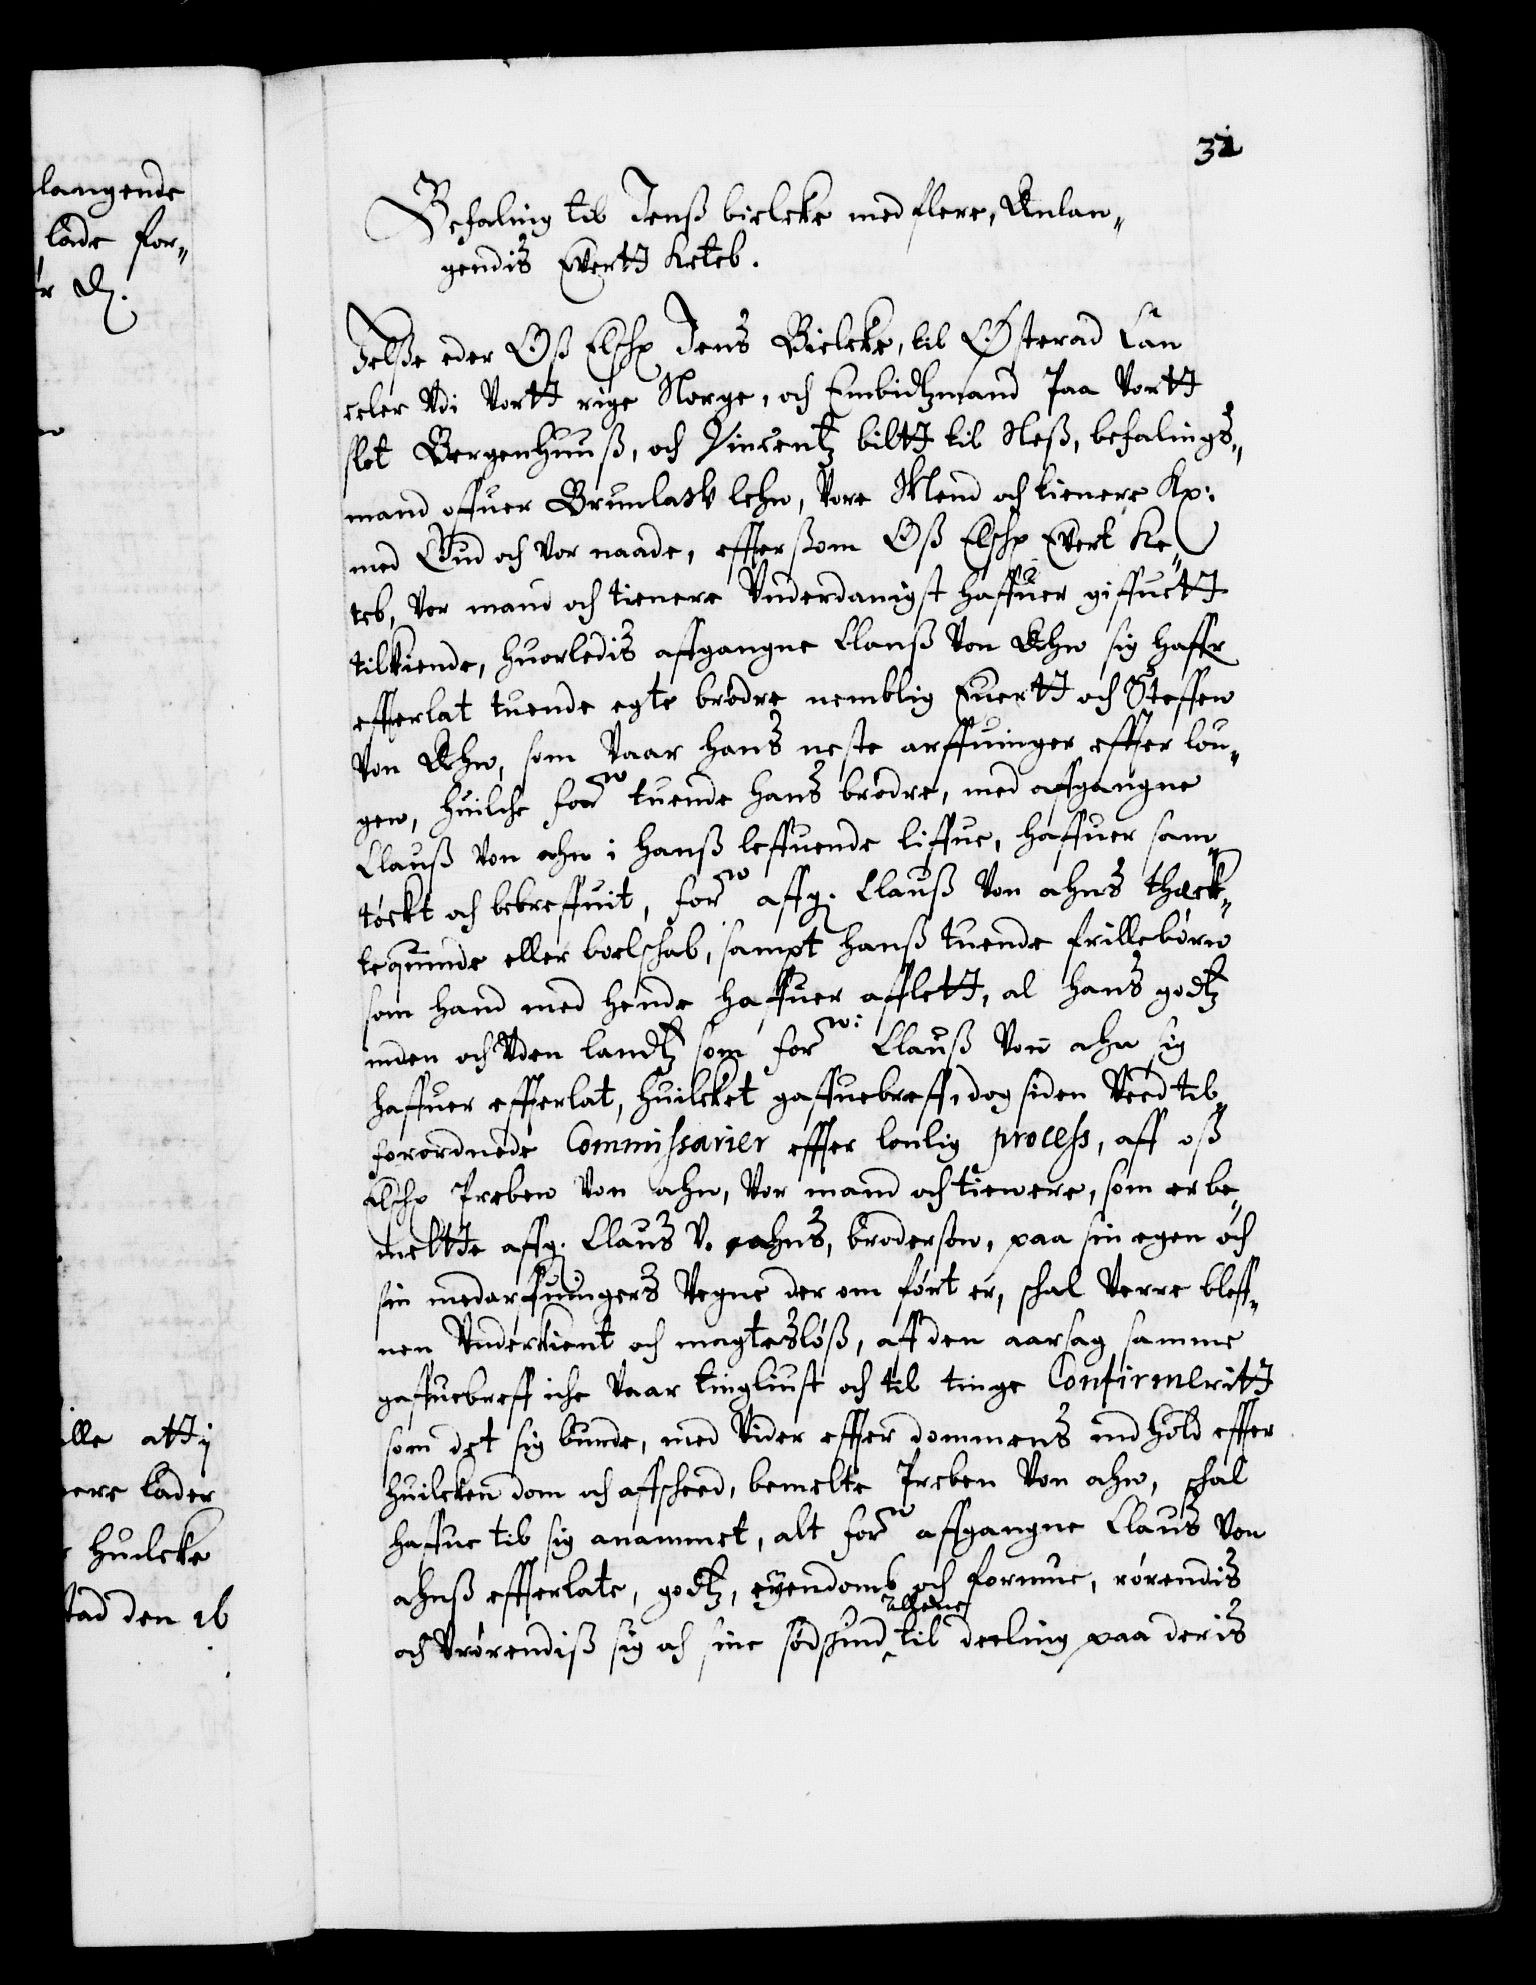 langende
lade for„
r N.
ille att i
ere lader
huilcke
stad den 16
31
Befaling til Jenß bielcke med flere, Anlan„
gendis Evertt Keteb.
Helße eder Oß Elsch Jens Bielcke, til Østerad Can
celer Vdi Vortt rige Norge, och Embidtzmand Paa Vortt
slot Bergenhuuß, och Vincentz biltt til Neß, befalings„
mand offuer Brunla lehn, Vore Mend och tienere Kp:
med Gud och Vor naade, effterßom Oß Elsch Evert Ke„
teb, Vor mand och tienere Vnderdanigst haffuer giffuett
tilkiende, huorledis affgangne Clauß Von Ahn sig haffr
effterlat tuende egte brødre nemblig Euertt och Steffen
Von Ahn, som Vaar hans neste arffuinger effter lou„
gen, huilche forn tuende hans brødre, med affgangne
Clauß Von ahn i hanß leffuende liffue, haffuer sam„
tøckt och bekreffuit, forn affg. Clauß Von ahns thæck„
tequinde eller boelschab, sampt hanß tuende frillebørn
som hand med hende haffuer afflett, al hans godtz
inden och Vden landtz som forn: Clauß Von ahn sig
haffuer effterlat, huilcket gaffuebreff, dog siden Ved til„
forordnede Commissarier effter loulig process, aff oß
Elsch Preben Von ahn, Vor mand och tienere, som er be„
meltte affg. Claus V. ahns, brodersøn, paa sin egen och
sin medarffuingers Vegne der om ført er, schal Verre bleff„
uen Vnderkient och magtesløß, aff den aarsag samme
gaffuebreff iche Vaar tingliust och til tinge Confirmeritt
som det sig burde, med Vider effter dommens indhold effter
huilcken dom och affscheed, bemelte Preben Von ahn, schal
haffue til sig anammet, alt forn affgangne Claus Von
ahnß effterlate, godtz, eyendomb och formue, rørendis
och Vrørendiß sig och sine sødschind alleene til deeling paa deris